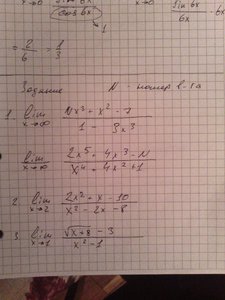 x→0 cos 6x x→0 sin 6x / 6x · 6x
1
= 2/6 = 1/3
Задание N - номер в-та
1. lim x→∞ (Nx³ + x² - 7) / (1 - 3x³)
lim x→∞ (2x⁵ + 4x³ - N) / (x⁴ + 4x² + 1)
2. lim x→2 (2x² + x - 10) / (x² - 2x - 8)
3. lim x→1 (√(x + 8) - 3) / (x² - 1)